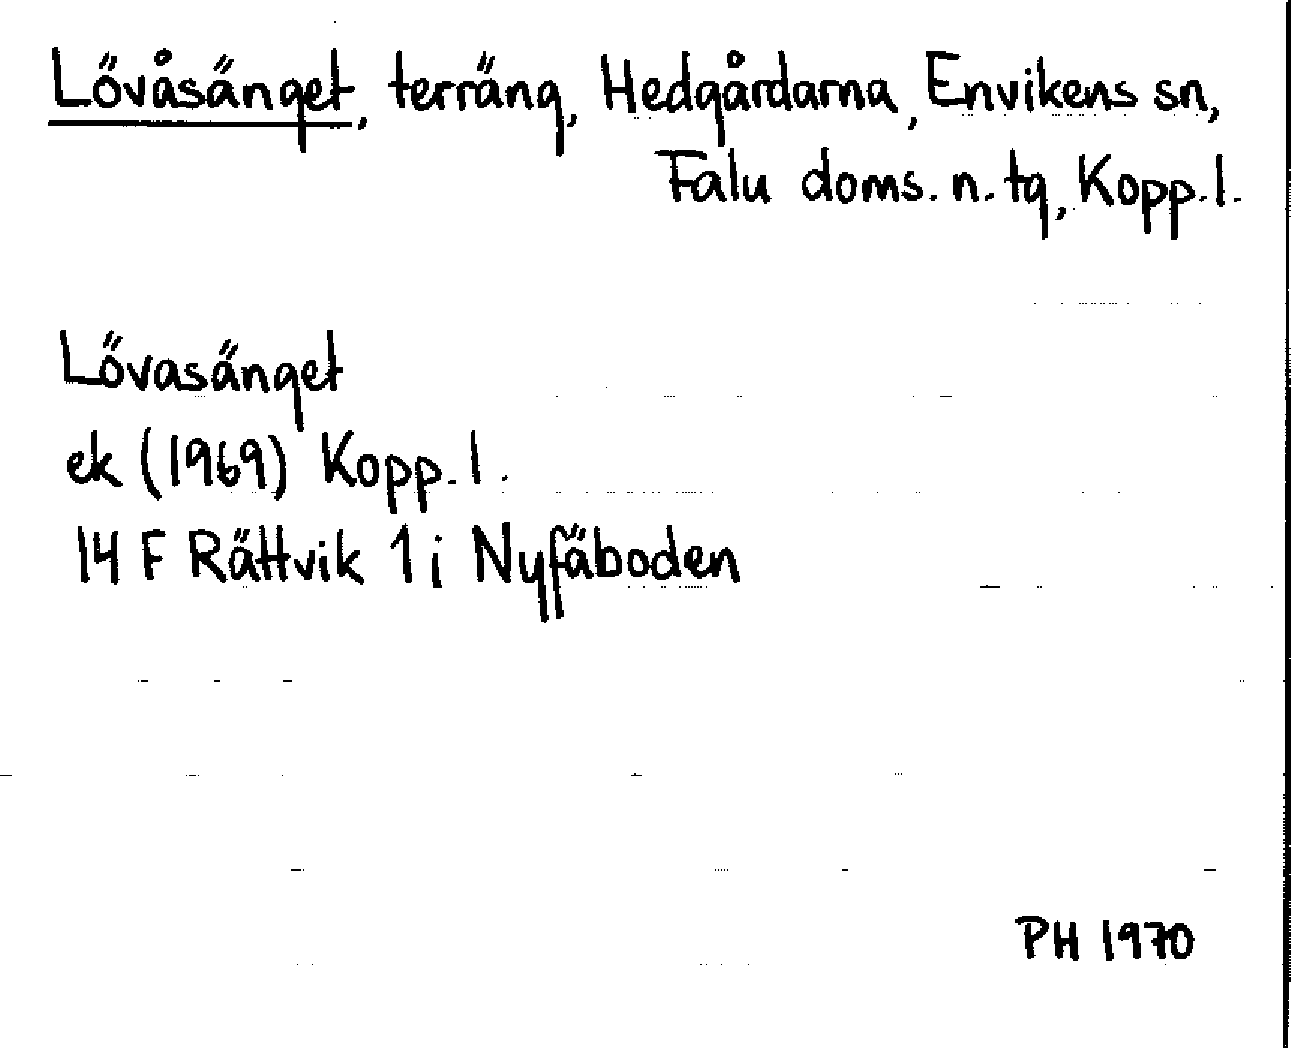 Lövåsänget, terräng, Hedgårdarna, Envikens sn,
Falu doms. n. tg, Kopp. l.
Lövasänget
ek (1969) Kopp. l.
14 F Rättvik 1 i Nyfäboden
PH 1970